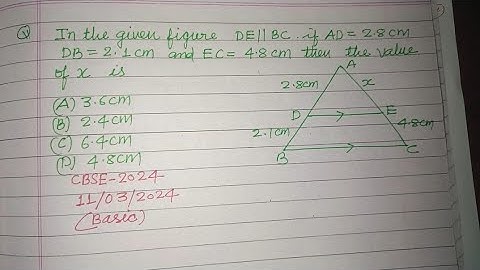 Q In the given figure DE||BC. if AD = 2.8cm
DB = 2.1cm and EC = 4.8cm then the value
of x is
(A) 3.6cm
(B) 2.4cm
(C) 6.4cm
(D) 4.8cm
CBSE-2024
11/03/2024
(Basic)
A
2.8cm x
D E
2.1cm 4.8cm
B C